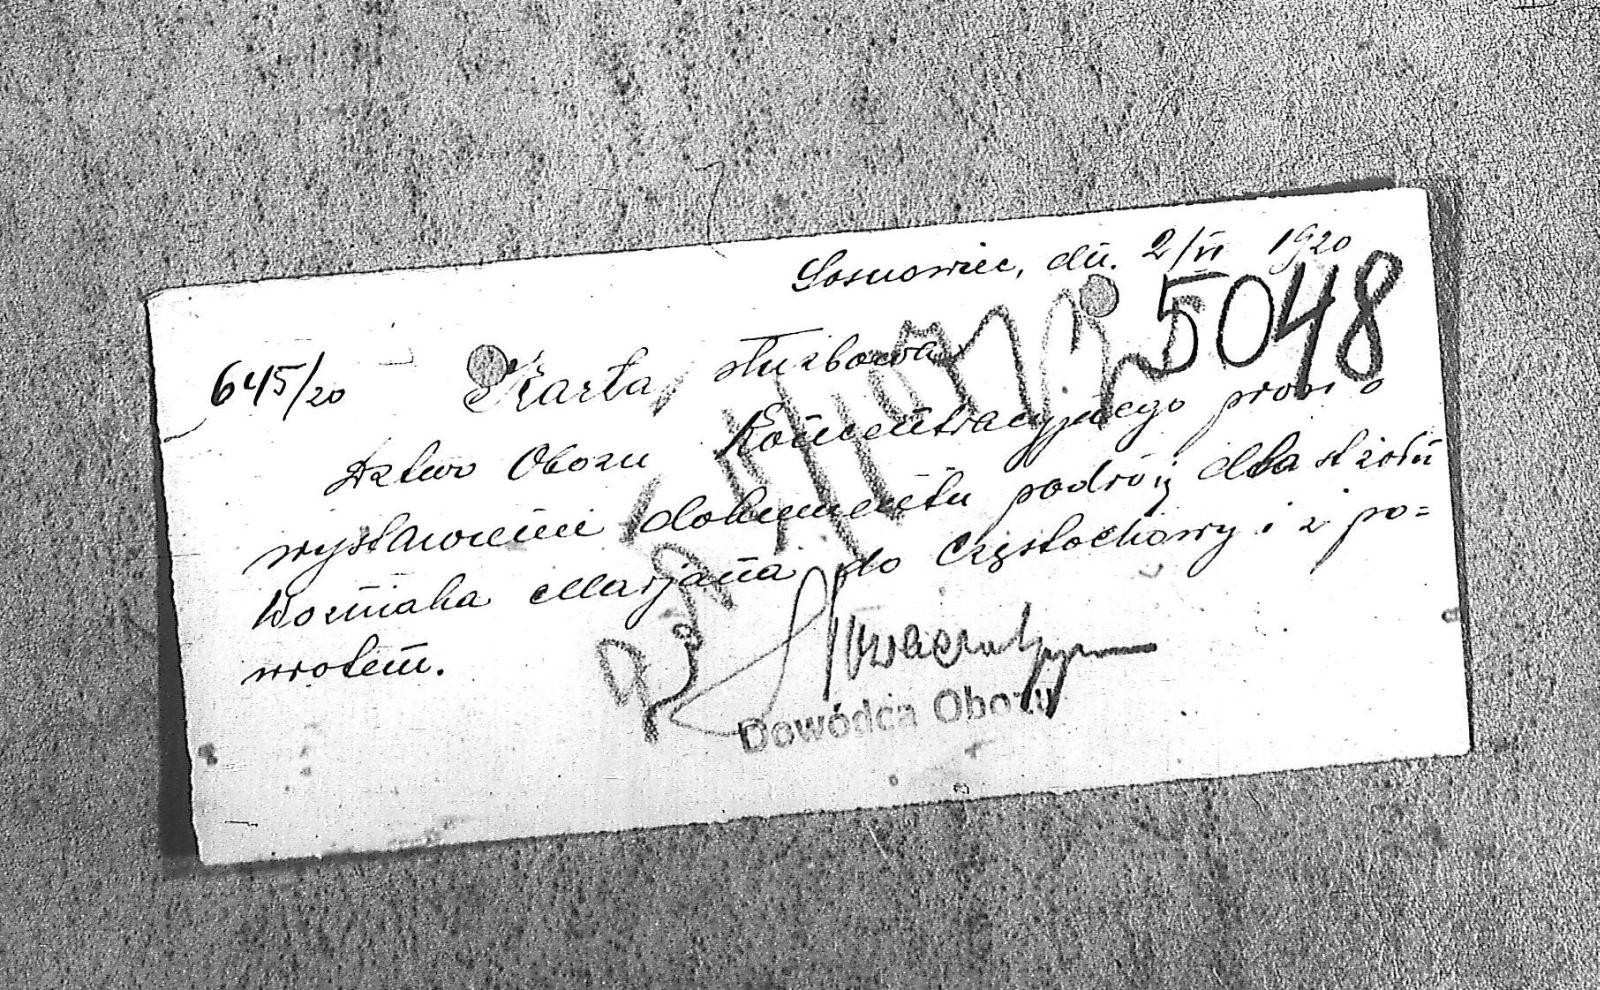 Sosnowiec, dn. 2/VI 1920
5048
645/20 Karta służbowa
Dztwo Obozu Koncentracyjnego prosi o
wystawienie dokumentu podróży dla st żołn
Woźniaka Marjana do Częstochowy i z po=
wrotem.
Dowódca Obozu